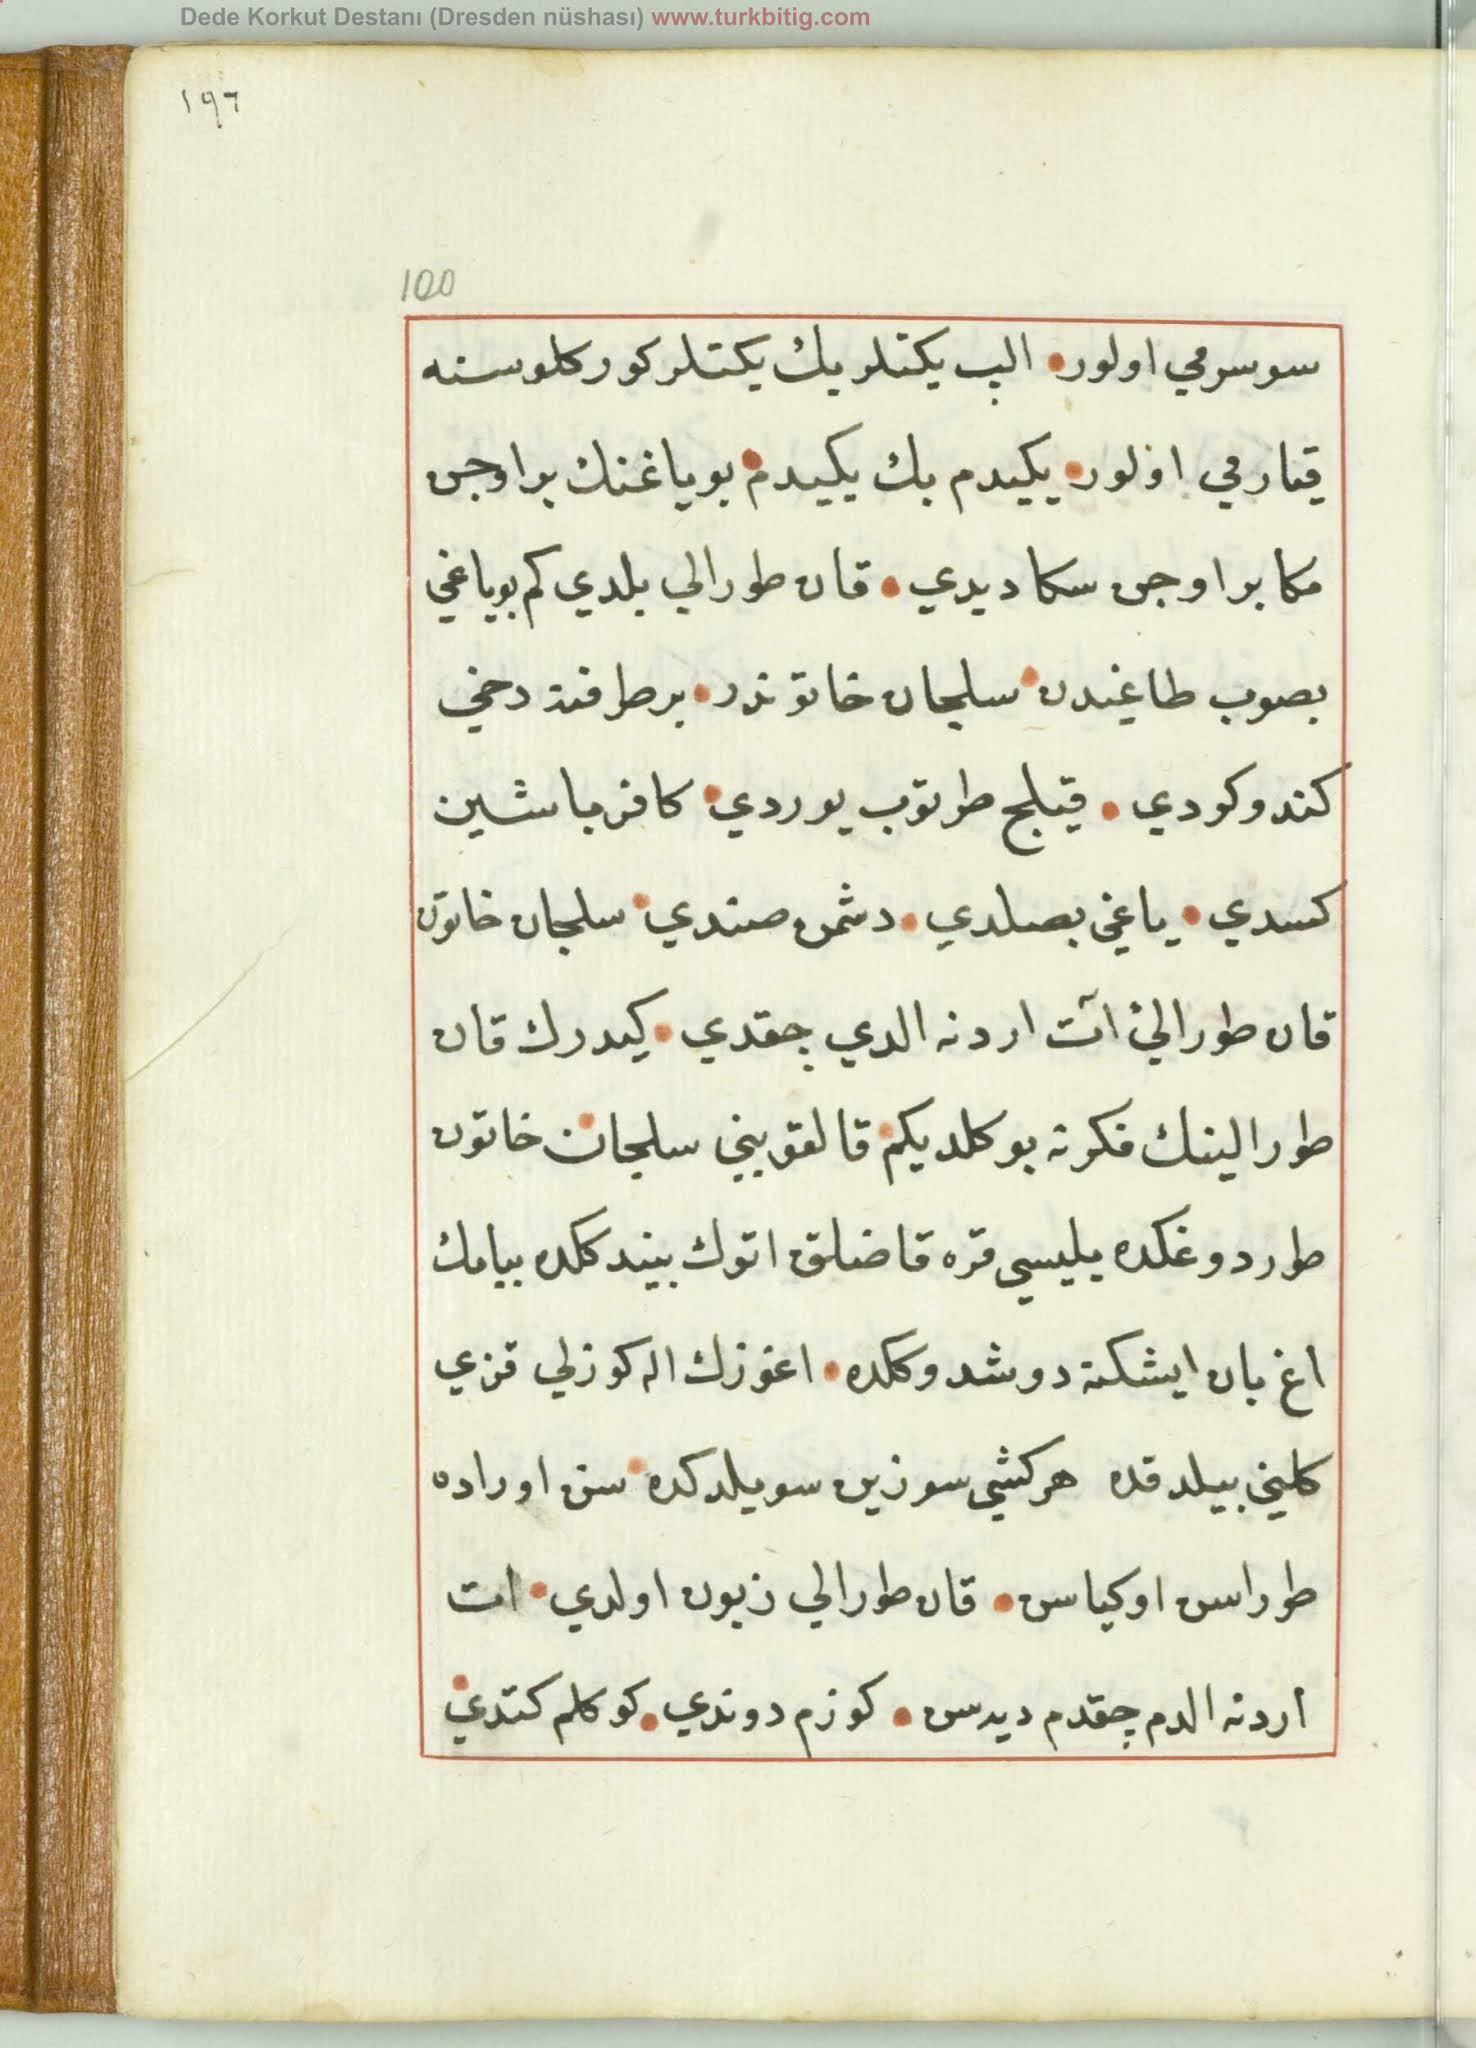 Dede Korkut Destanı (Dresden nüshası) www.turkbitig.com
١٩٦
100
سوسومي اولور• الب يكتلر بك يكتلر كوركلوسنه
قيارمي اولور• يكيدم بك يكيدم• بو ياغنك بر اوجى
مكا بر اوجى سكا ديدي• قان طورالي بلدي كم بو ياغي
بصوب طاغيدن• سلجان خاتوندر• بر طرفنه دخي
كندو كودي• قيلج طرتوب يوردي• كافر باشين
كسدي• ياغي بصلدي• دشمن صندي• سلجان خاتون
قان طورالئ آت اردنه الدي چقدي• كيدرك قان
طورالينك فكرنه بو كلديكم• قالقوبني سلجان خاتون
طوردوغكده يليسي قره قاضلق اتوك بيندككده ببامك
اغ بان ايشكنه دوشدوككده• اغوزك اله كوزلي قزي
كليني بيلدقده هر كشي سوزين سويلدكده• سن اوراده
طوراسن اوكياسن• قان طورالي زبون اولدي• ات
اردنه الدم چقدم ديرسن• كوزم دوندي• كوكلم كتدي•